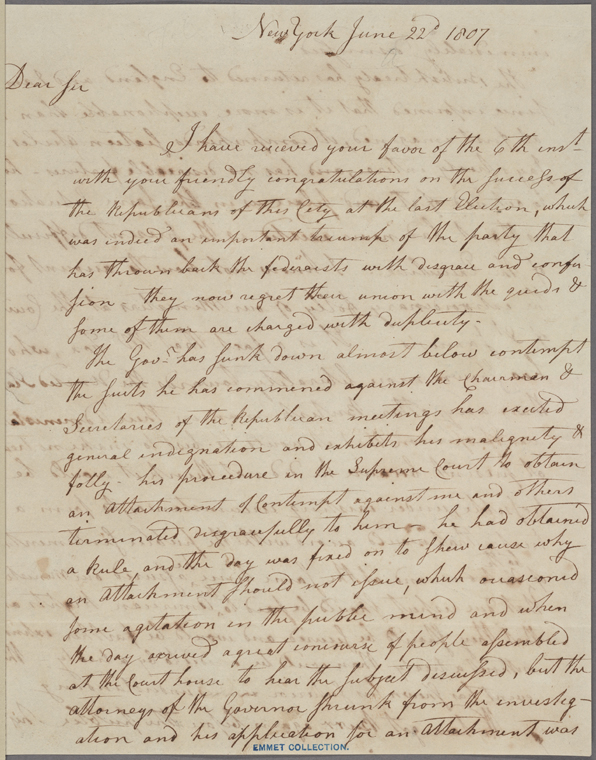 New York June 22d 1807
Dear Sir
I have received your favor of the 6th inst
with your friendly congratulations on the success of
the Republicans of this City at the last Election, which
was indeed an important triump of the party that
has thrown back the federaists with disgrace and confu
sion they now regret their union with the quids &
some of them are charged with duplicity-
The Govr. has sunk down almost below contempt
the suits he has commenced against the Chairman &
Secretaries of the Republican meetings has excited
general indignation and exhibits his malignety &
folly- his procedure in the Supreme Court to obtain
an Attachment of Contempt against me and others
terminated disgracefully to him - he had obtained
a Rule and the day was fixed on to shew cause why
an Attachment should not issue, which occasioned
some agitation in the public mind and when
the day arrived a great concourse of people assembled
at the Court house to hear the subject discussed, but the
attorneys of the Governor shrunk from the investig-
ation and his application for an Attachment was
EMMET COLLECTION.